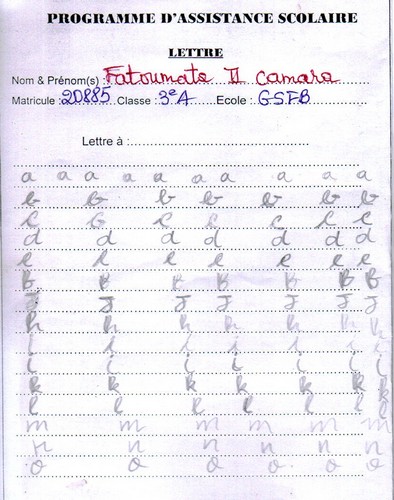 PROGRAMME D'ASSISTANCE SCOLAIRE
LETTRE
Nom & Prénom(s) : Fatoumata II Camara
Matricule : 20885 Classe : 3e A Ecole : GSFB
Lettre à :
a a a a a a a a a a
b b b b b b b
c c c c c c c
d d d d d d d
e e e e e e e
B B B B B B B
J J J J J J J
h h h h h h h
i i i i i i i
k k k k k k k
l l l l l l l
m m m m m m
n n n n n n
o o o o o o